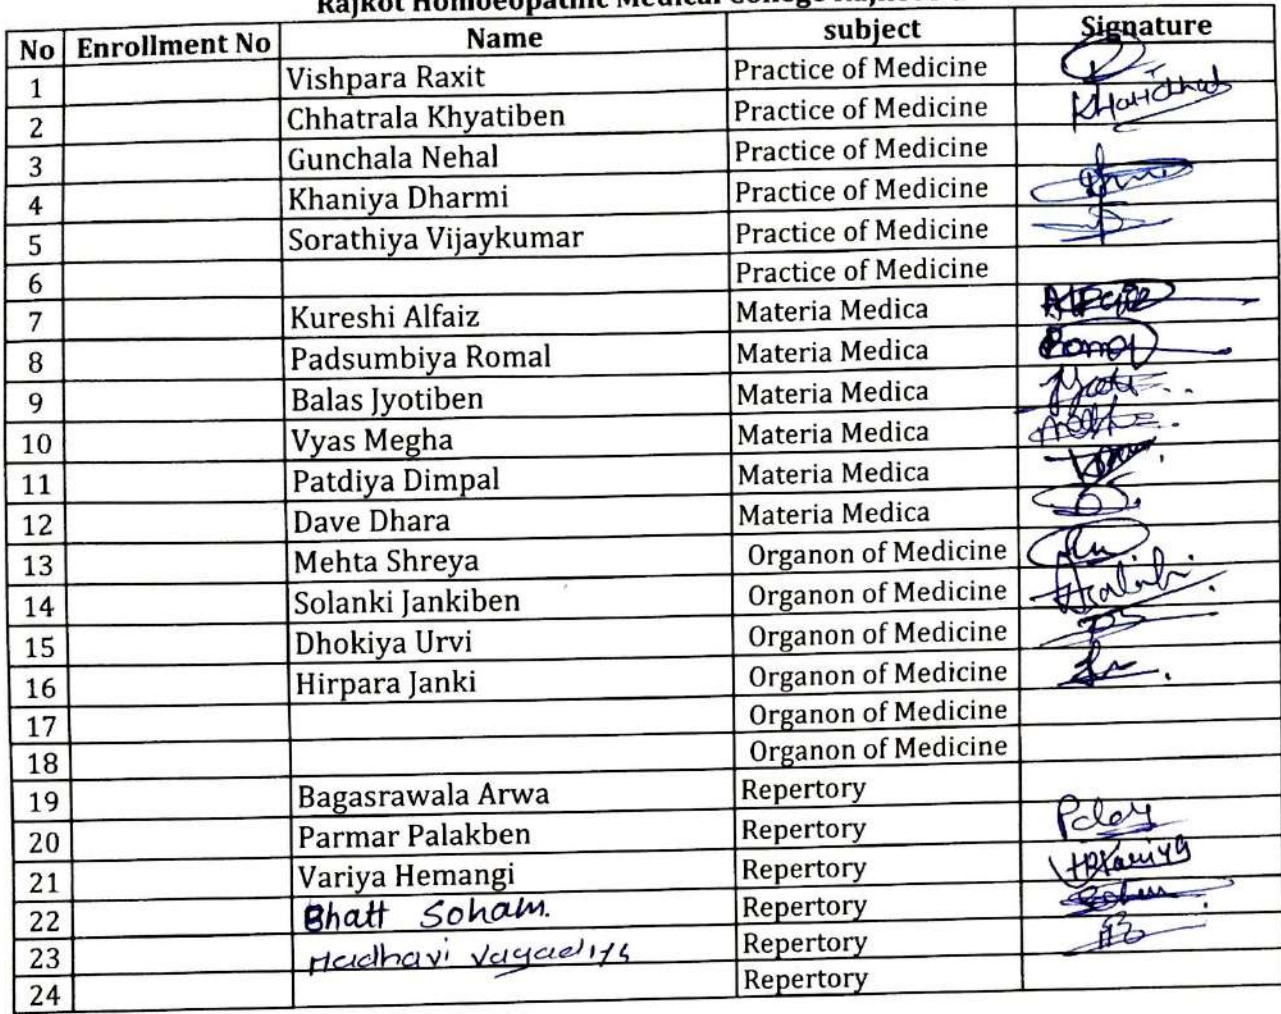 Rajkot Homoeopathic Medical College Rajkot
No Enrollment No Name subject Signature
1 Vishpara Raxit Practice of Medicine
2 Chhatrala Khyatiben Practice of Medicine
3 Gunchala Nehal Practice of Medicine
4 Khaniya Dharmi Practice of Medicine
5 Sorathiya Vijaykumar Practice of Medicine
6 Practice of Medicine
7 Kureshi Alfaiz Materia Medica
8 Padsumbiya Romal Materia Medica Romal
9 Balas Jyotiben Materia Medica
10 Vyas Megha Materia Medica
11 Patdiya Dimpal Materia Medica
12 Dave Dhara Materia Medica
13 Mehta Shreya Organon of Medicine
14 Solanki Jankiben Organon of Medicine
15 Dhokiya Urvi Organon of Medicine
16 Hirpara Janki Organon of Medicine
17 Organon of Medicine
18 Organon of Medicine
19 Bagasrawala Arwa Repertory
20 Parmar Palakben Repertory
21 Variya Hemangi Repertory
22 Bhatt Soham. Repertory
23 Madhavi Vagadiya Repertory
24 Repertory